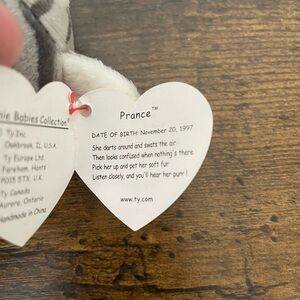 nie Babies Collection®
© Ty Inc.
Oakbrook, IL. U.S.A.
Ty Europe Ltd.
Fareham, Hants
PO15 5TX, U.K.
Ty Canada
Aurora, Ontario
Handmade in China
Prance™
DATE OF BIRTH: November 20, 1997
She darts around and swats the air
Then looks confused when nothing's there
Pick her up and pet her soft fur
Listen closely, and you'll hear her purr!
www.ty.com